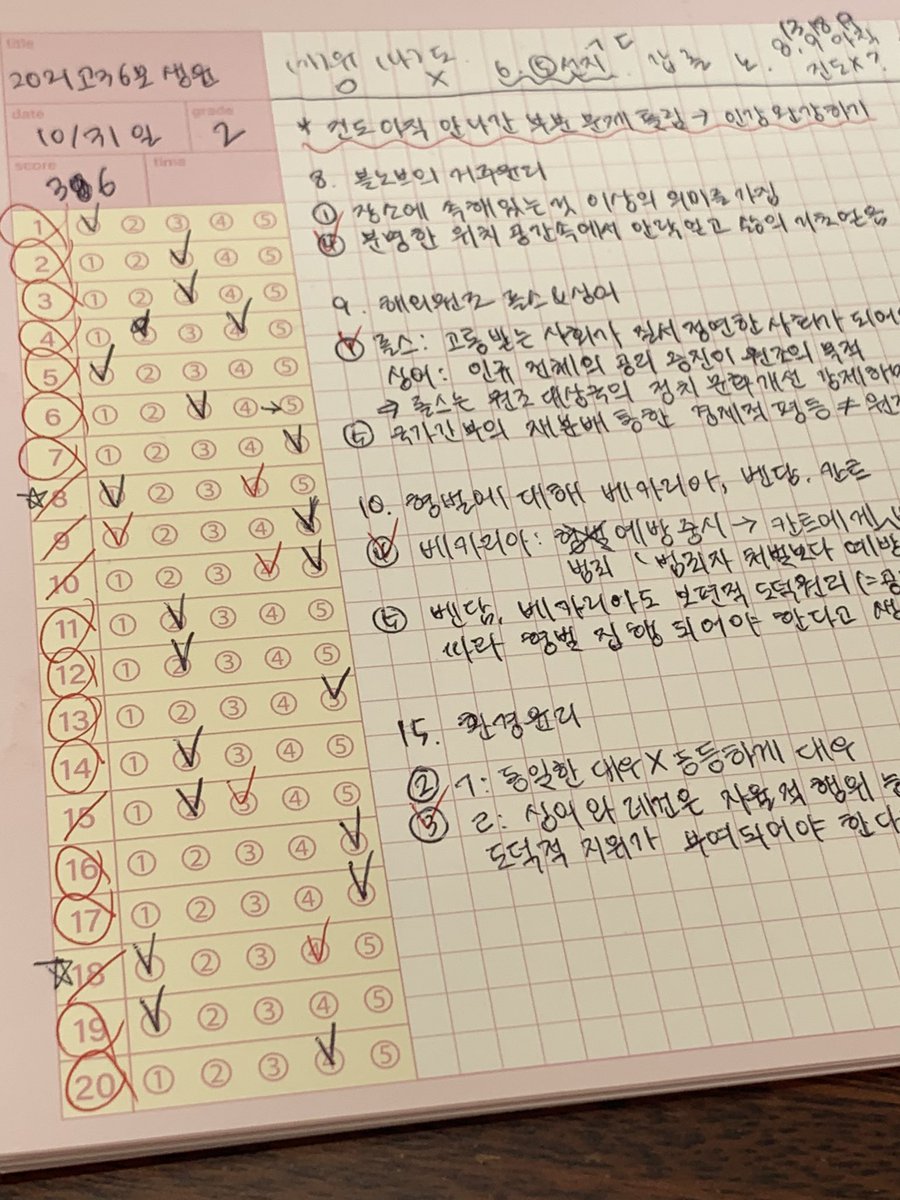 title
2021 고3 6모 생윤
date
10/31 일
grade
2
score
36
time
* 진도 아직 안나간 부분 문제 틀림 → 인강 완강하기
8. 볼노브의 거주윤리
① 장소에 속해있는 것 이상의 의미를 가짐
④ 분명한 위치 공간속에서 안락 얻고 삶의 기초 얻음
9. 해외원조 롤스&싱어
① 롤스: 고통받는 사회가 질서 정연한 사회가 되어
싱어: 인류 전체의 공리 증진이 원조의 목적
⇒ 롤스는 원조 대상국의 정치 문화개선 강제하
⑤ 국가간 부의 재분배 통한 경제적 평등 ≠ 원조
10. 형벌에 대해 베카리아, 벤담, 칸트
④ 베카리아: 예방 중시 → 칸트에게
범죄 범죄자 처벌보다 예방
⑤ 벤담, 베카리아도 보편적 도덕원리 (=공
따라 형벌 집행 되어야 한다고 생
15. 환경윤리
② ㄱ: 동일한 대우 X 동등하게 대우
③ ㄹ: 싱어와 레건은 자율적 행위 능
도덕적 지위가 부여되어야 한다
1 ① ② ③ ④ ⑤
2 ① ② ③ ④ ⑤
3 ① ② ③ ④ ⑤
4 ① ② ③ ④ ⑤
5 ① ② ③ ④ ⑤
6 ① ② ③ ④ → ⑤
7 ① ② ③ ④ ⑤
☆ 8 ① ② ③ ④ ⑤
9 ① ② ③ ④ ⑤
10 ① ② ③ ④ ⑤
11 ① ② ③ ④ ⑤
12 ① ② ③ ④ ⑤
13 ① ② ③ ④ ⑤
14 ① ② ③ ④ ⑤
15 ① ② ③ ④ ⑤
16 ① ② ③ ④ ⑤
17 ① ② ③ ④ ⑤
☆ 18 ① ② ③ ④ ⑤
19 ① ② ③ ④ ⑤
20 ① ② ③ ④ ⑤